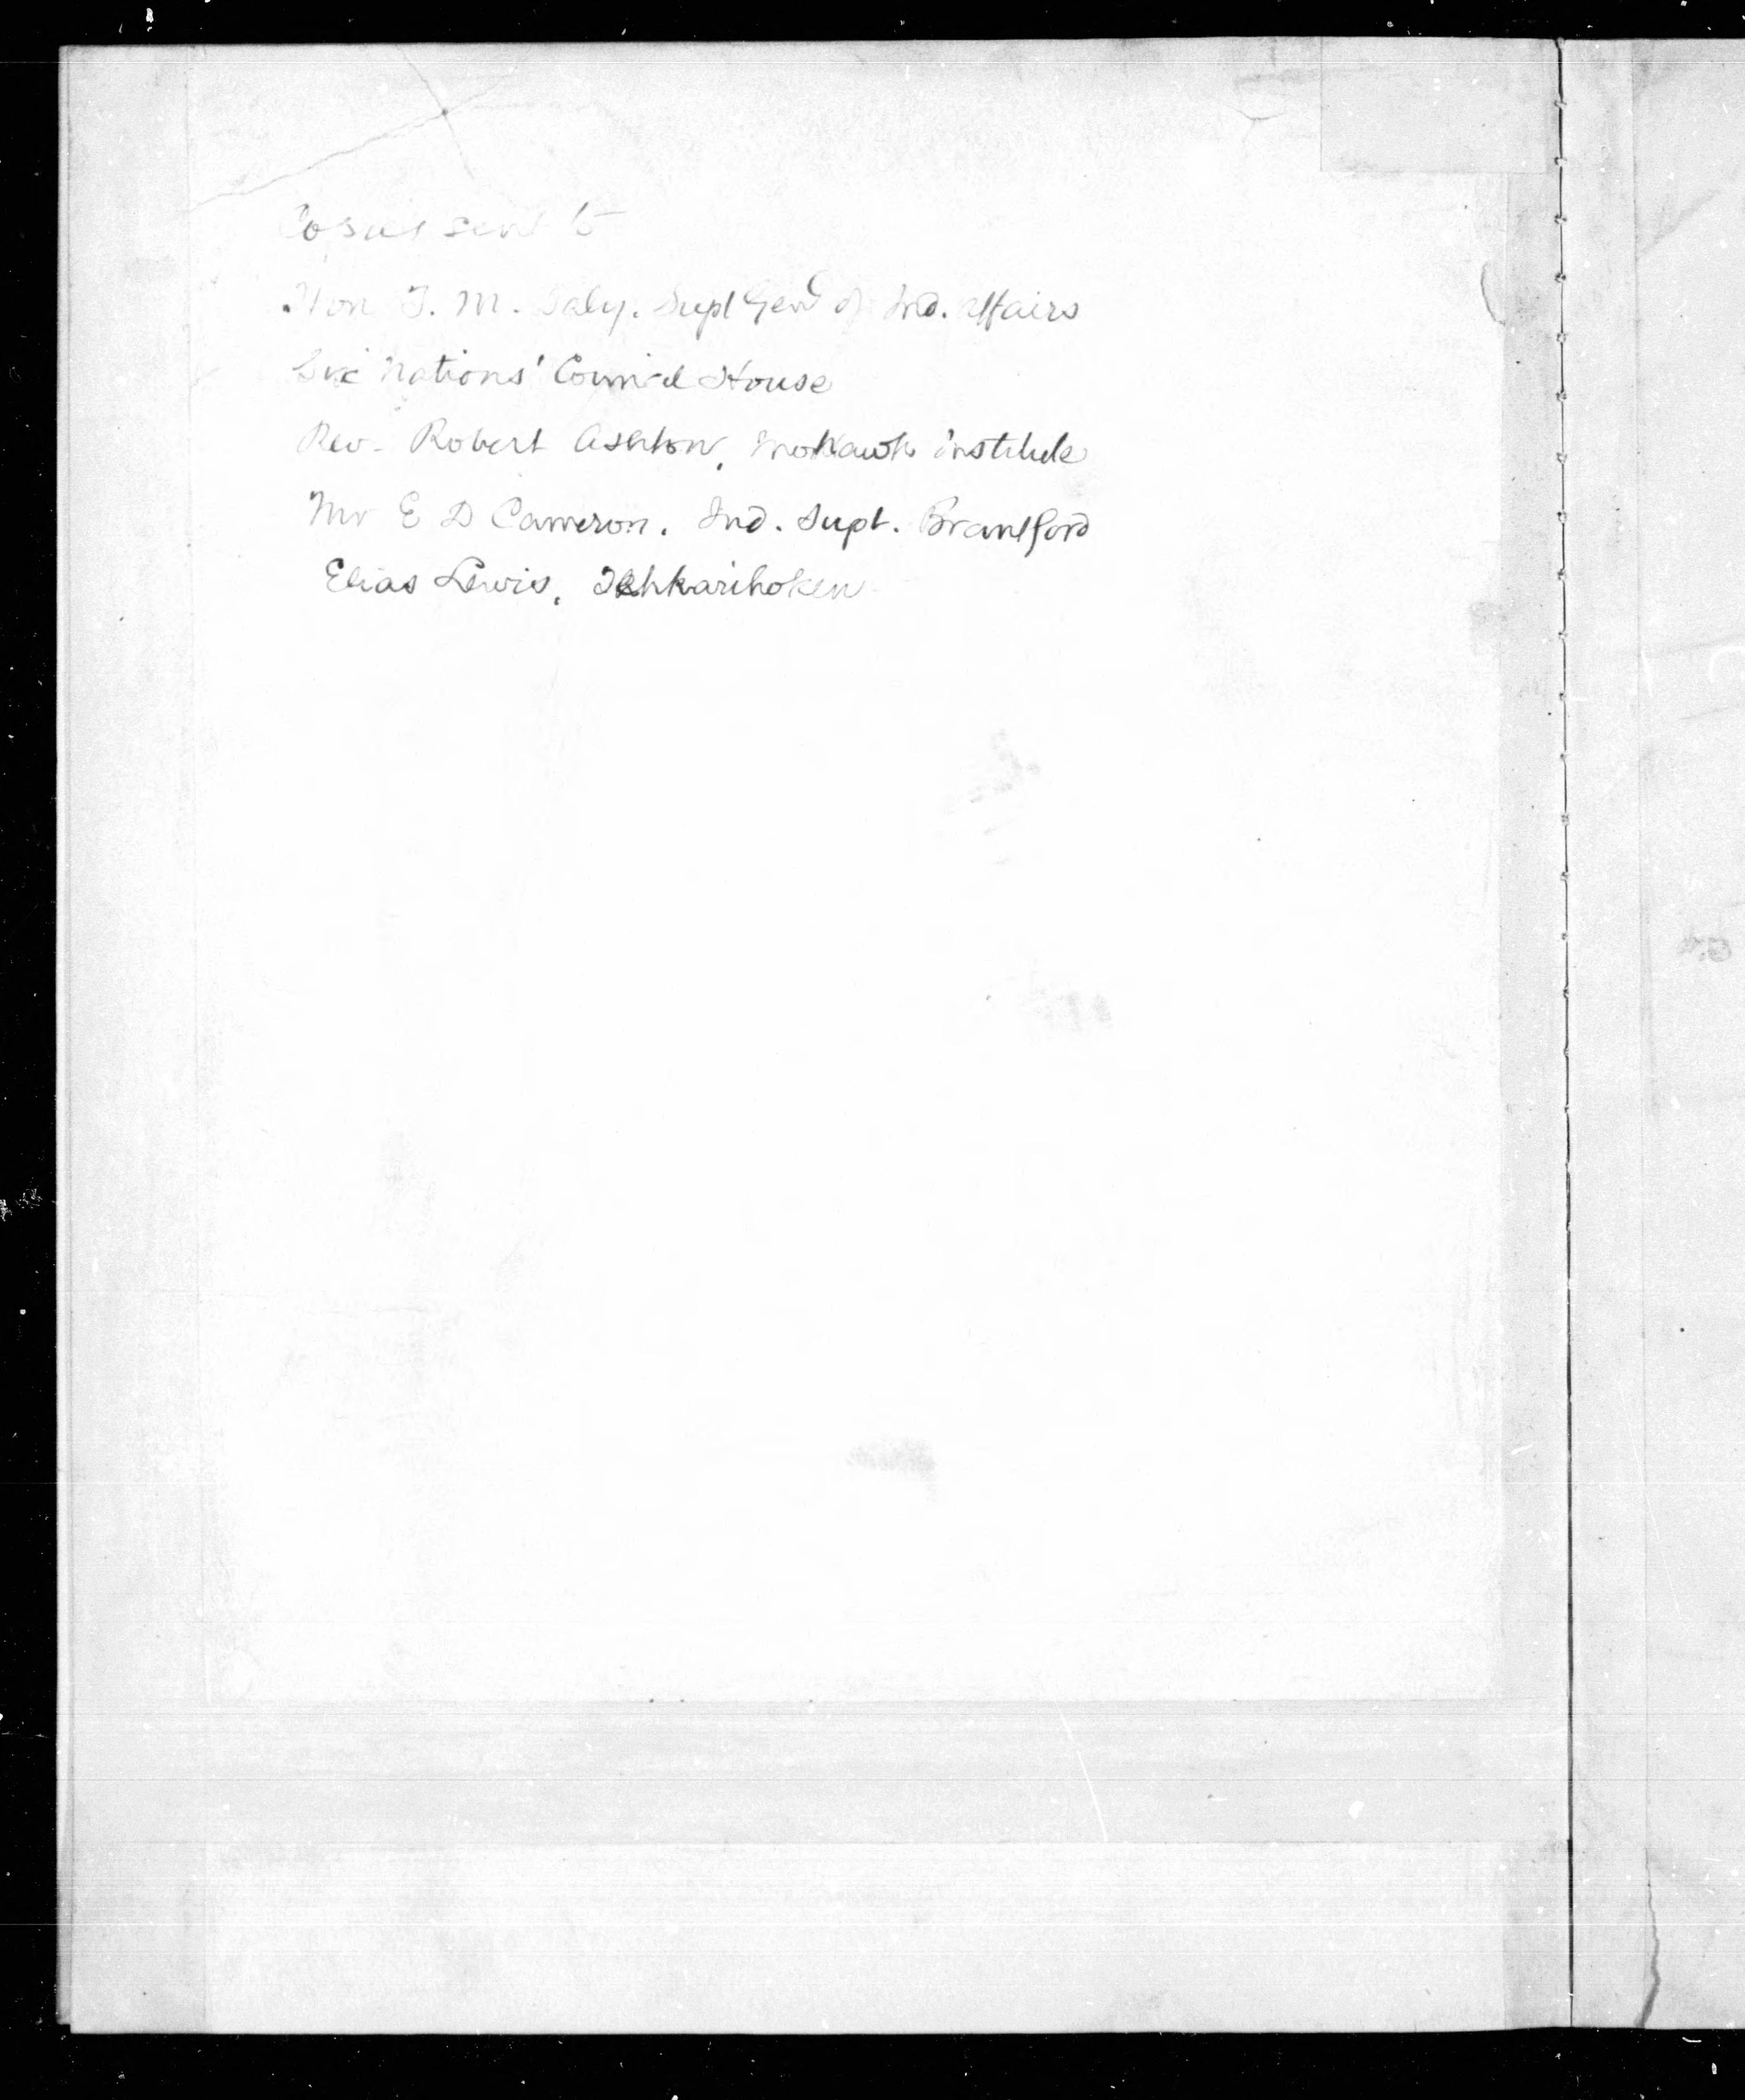 Copies sent to
Hon T. M. Daly. Supt Genl of Ind. Affairs
Six Nations' Council House
Rev. Robert Ashton, Mohawk Institute
Mr E D Cameron. Ind. Supt. Brantford
Elias Lewis, Tehkarihoken